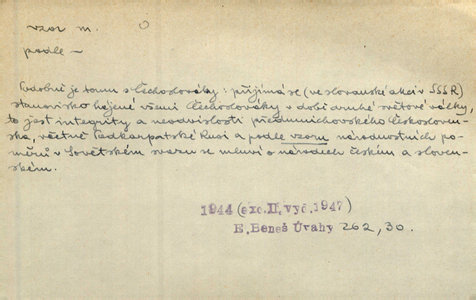 vzor m. O
podle –
Podobné je tomu s Čechoslováky: přijímá se (ve slovanské akci v SSSR)
stanovisko hájené všemi Čechoslováky v době druhé světové války,
to jest integrity a neodvislosti předmnichovského Českosloven-
ska, včetně Podkarpatské Rusi a podle vzoru národnostních po-
měrů v Sovětském svazu se mluví o národech českém a sloven-
ském.
1944 (exc. II. vyd. 1947)
E. Beneš Úvahy 262, 30.